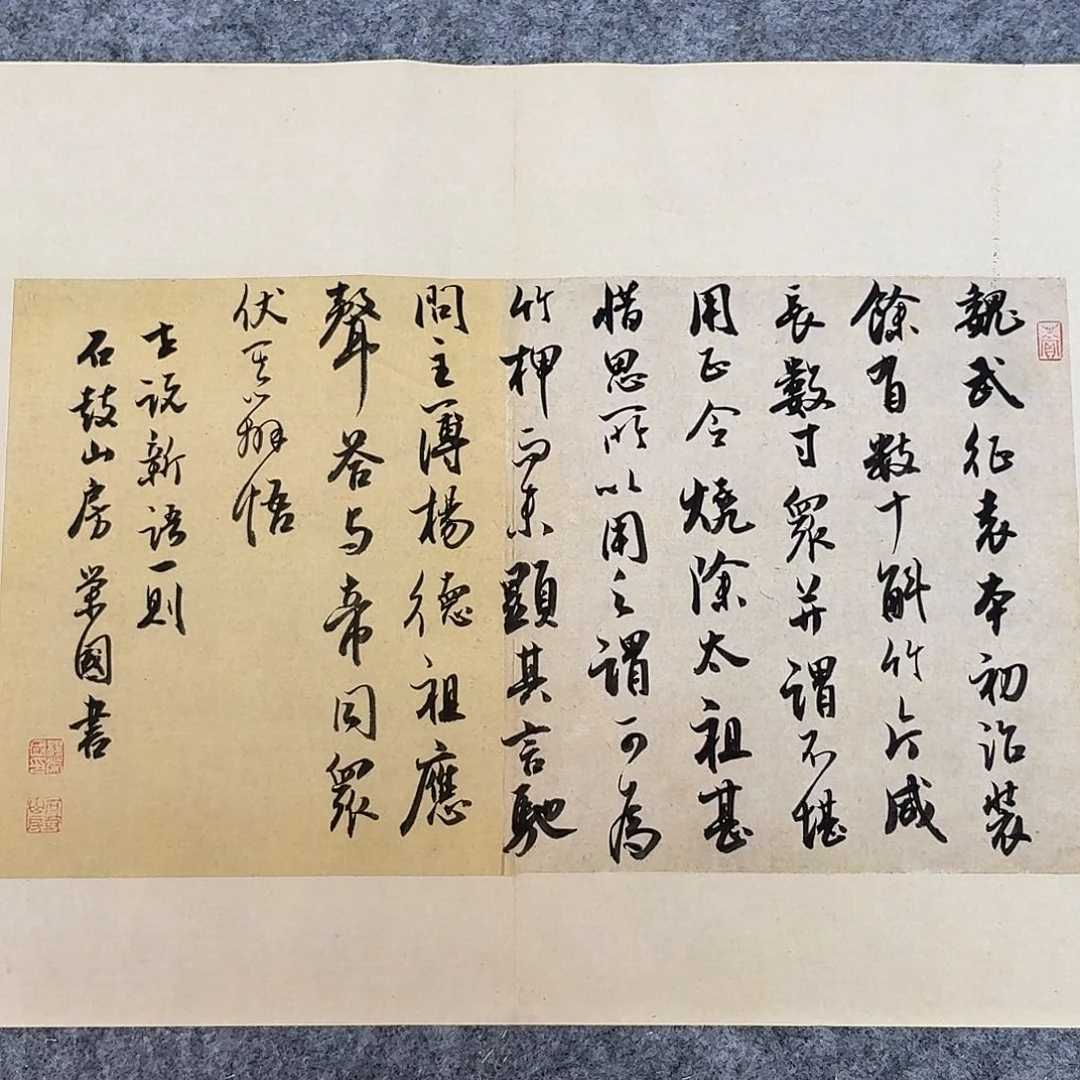 魏武征袁本初治裝
餘有數十斛竹片咸
長數寸眾并謂不堪
用正令燒除太祖甚
惜思所以用之謂可為
竹椑而未顯其言馳
問主簿楊德祖應
聲答與帝同眾
伏其辯悟
世說新語一則
石鼓山房榮國書